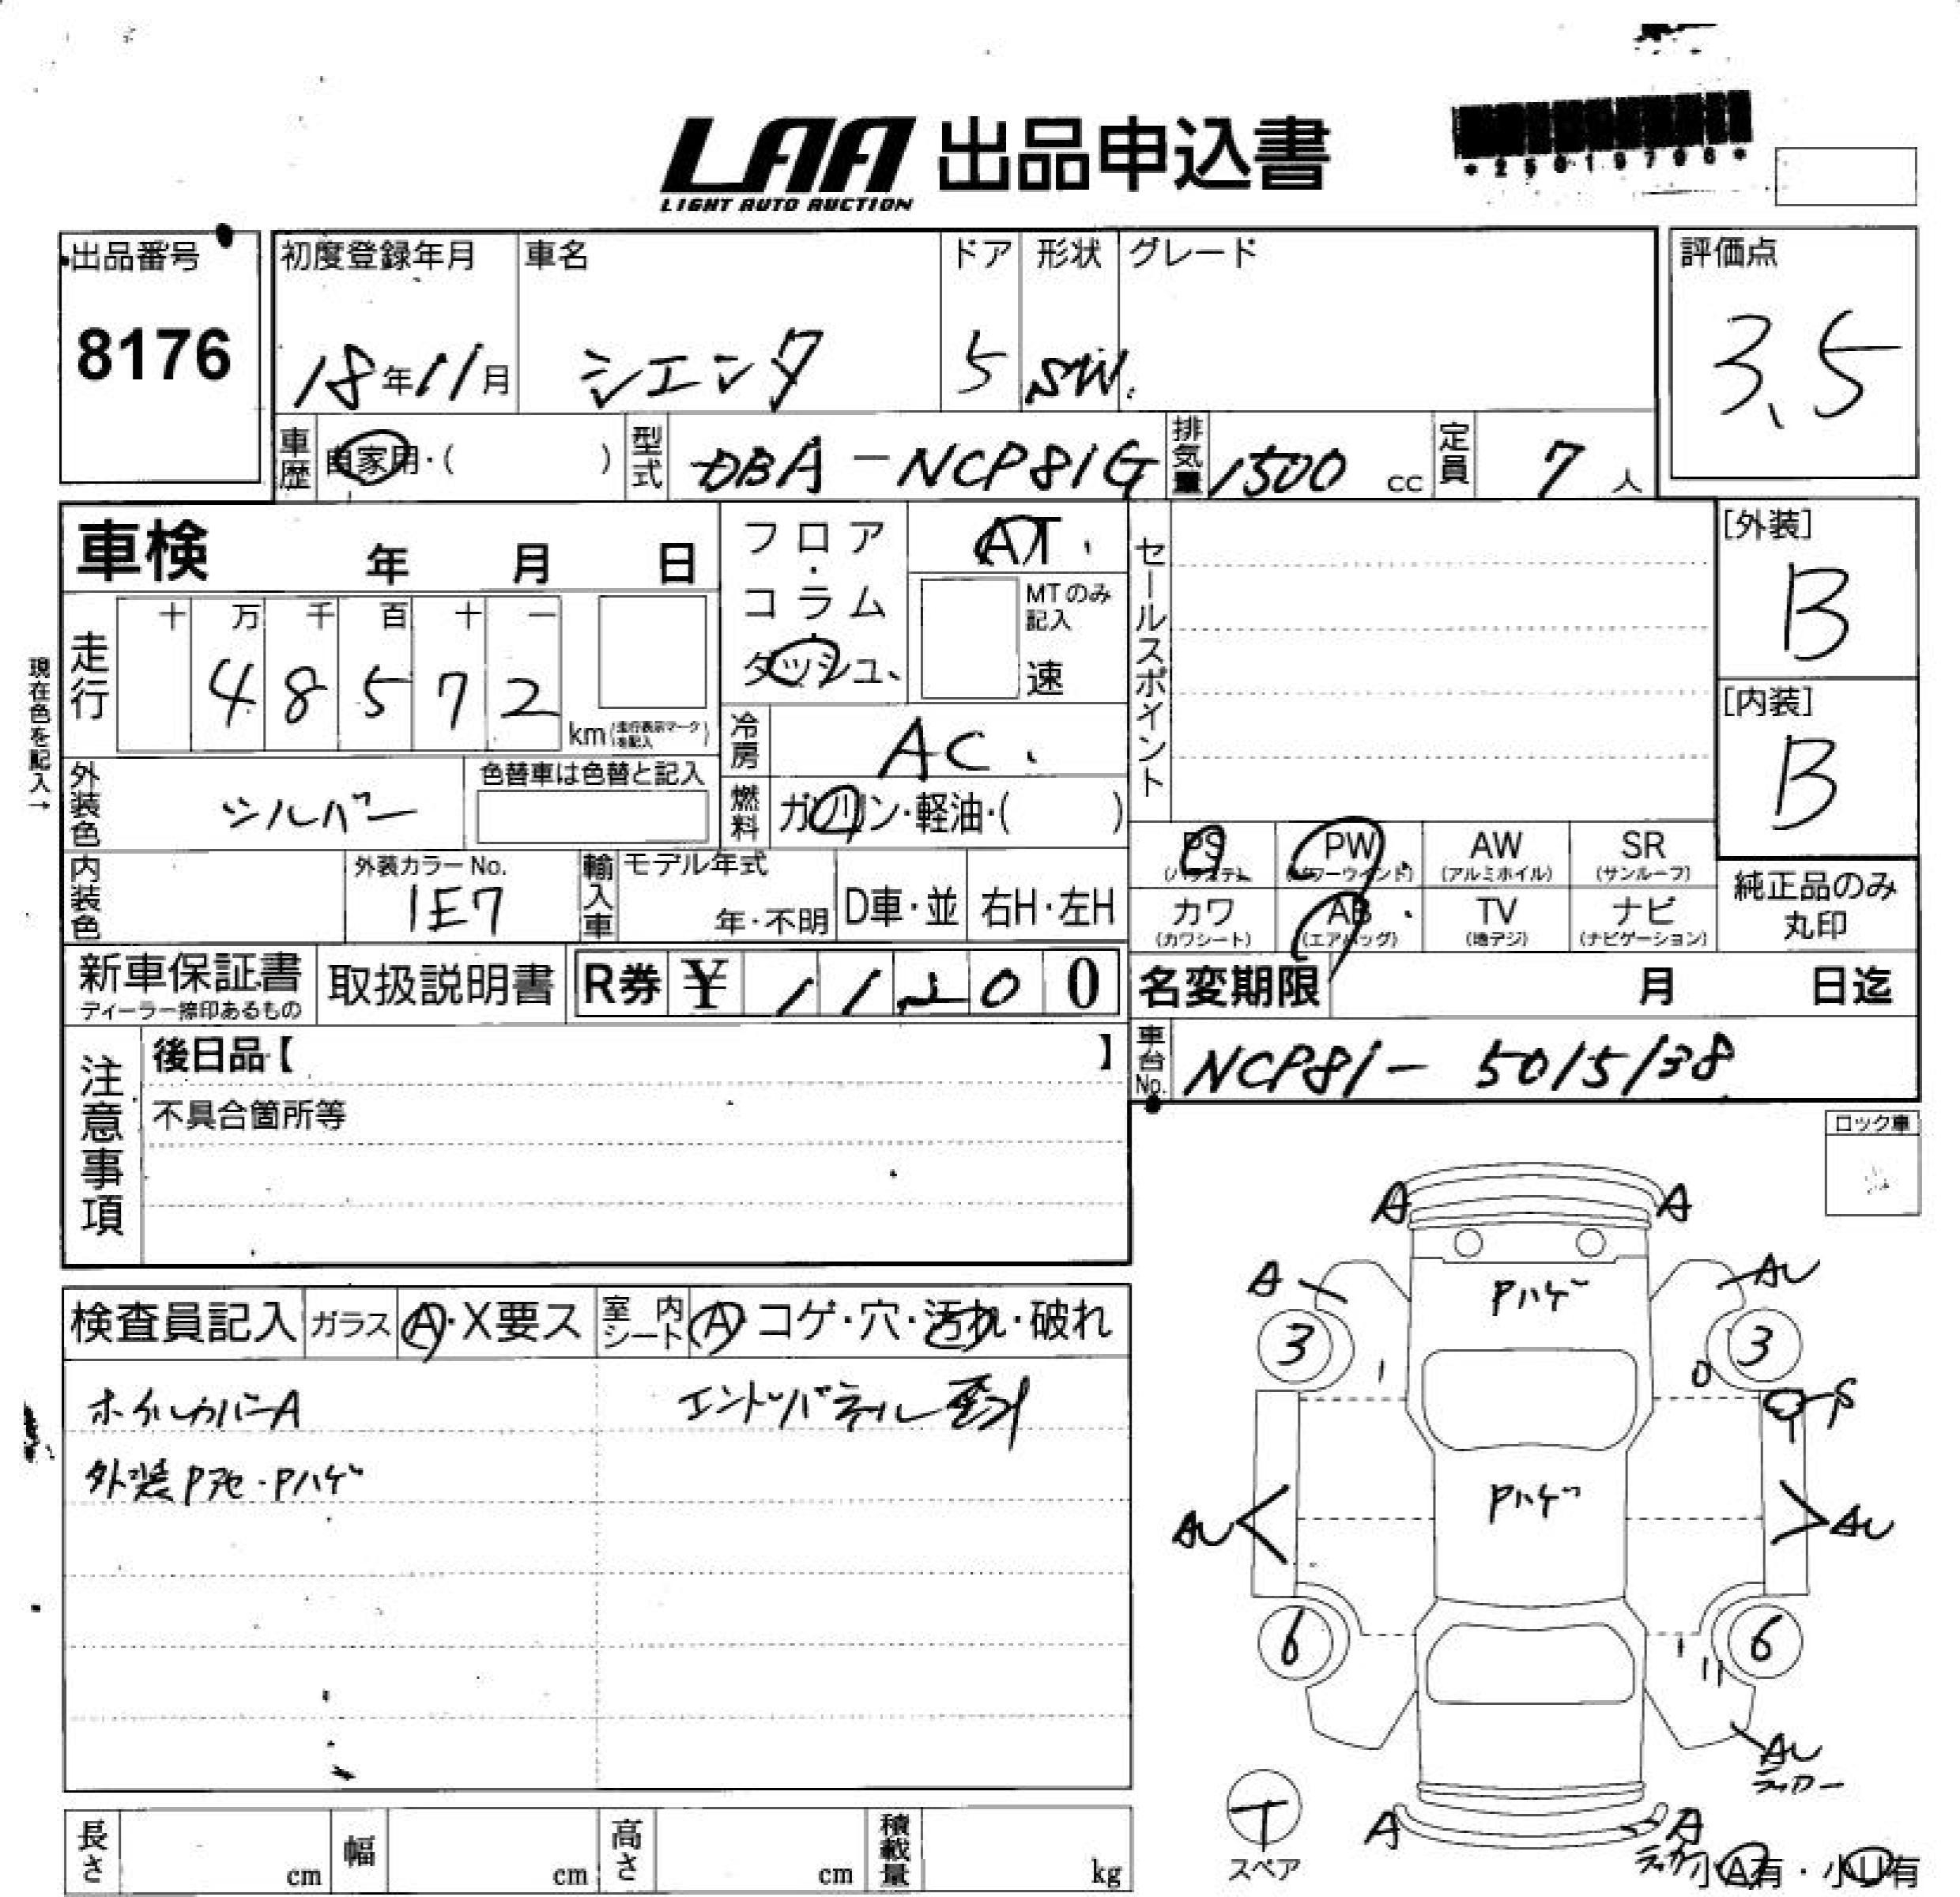 LAA 出品申込書
LIGHT AUTO AUCTION
*25019796*
出品番号
8176
初度登録年月
18年11月
車名
シエンタ
ドア
5
形状
SW.
グレード
評価点
3.5
車歴 自家用・( )
型式 DBA-NCP81G
排気量 1500 cc
定員 7 人
車検 年 月 日
フロア・コラム・ダッシュ
AT
MTのみ記入
速
セールスポイント
[外装]
B
[内装]
B
現在色を記入→
走行
十 万 千 百 十 一
4 8 5 7 2
km (走行表示マークを記入)
冷房 AC
外装色 シルバー
色替車は色替と記入
燃料 ガソリン・軽油・( )
内装色
外装カラーNo.
1E7
輸入車
モデル年式
年・不明
D車・並
右H・左H
PS (パワステ)
PW (パワーウインド)
AW (アルミホイル)
SR (サンルーフ)
カワ (カワシート)
AB (エアバッグ)
TV (地デジ)
ナビ (ナビゲーション)
純正品のみ丸印
新車保証書
ディーラー捺印あるもの
取扱説明書
R券 ¥ 11200
名変期限 月 日迄
車台No. NCP81-5015138
注意事項
後日品【 】
不具合箇所等
ロック車
検査員記入
ガラス A・X要ス
室内シート A コゲ・穴・汚れ・破れ
ホイルカバーA
外装Pアセ・Pハゲ
A A
A AU
Pハゲ
3 3
Pハゲ
AU AU
6 6
AU
A A
T
スペア
小A有・小U有
長さ cm
幅 cm
高さ cm
積載量 kg